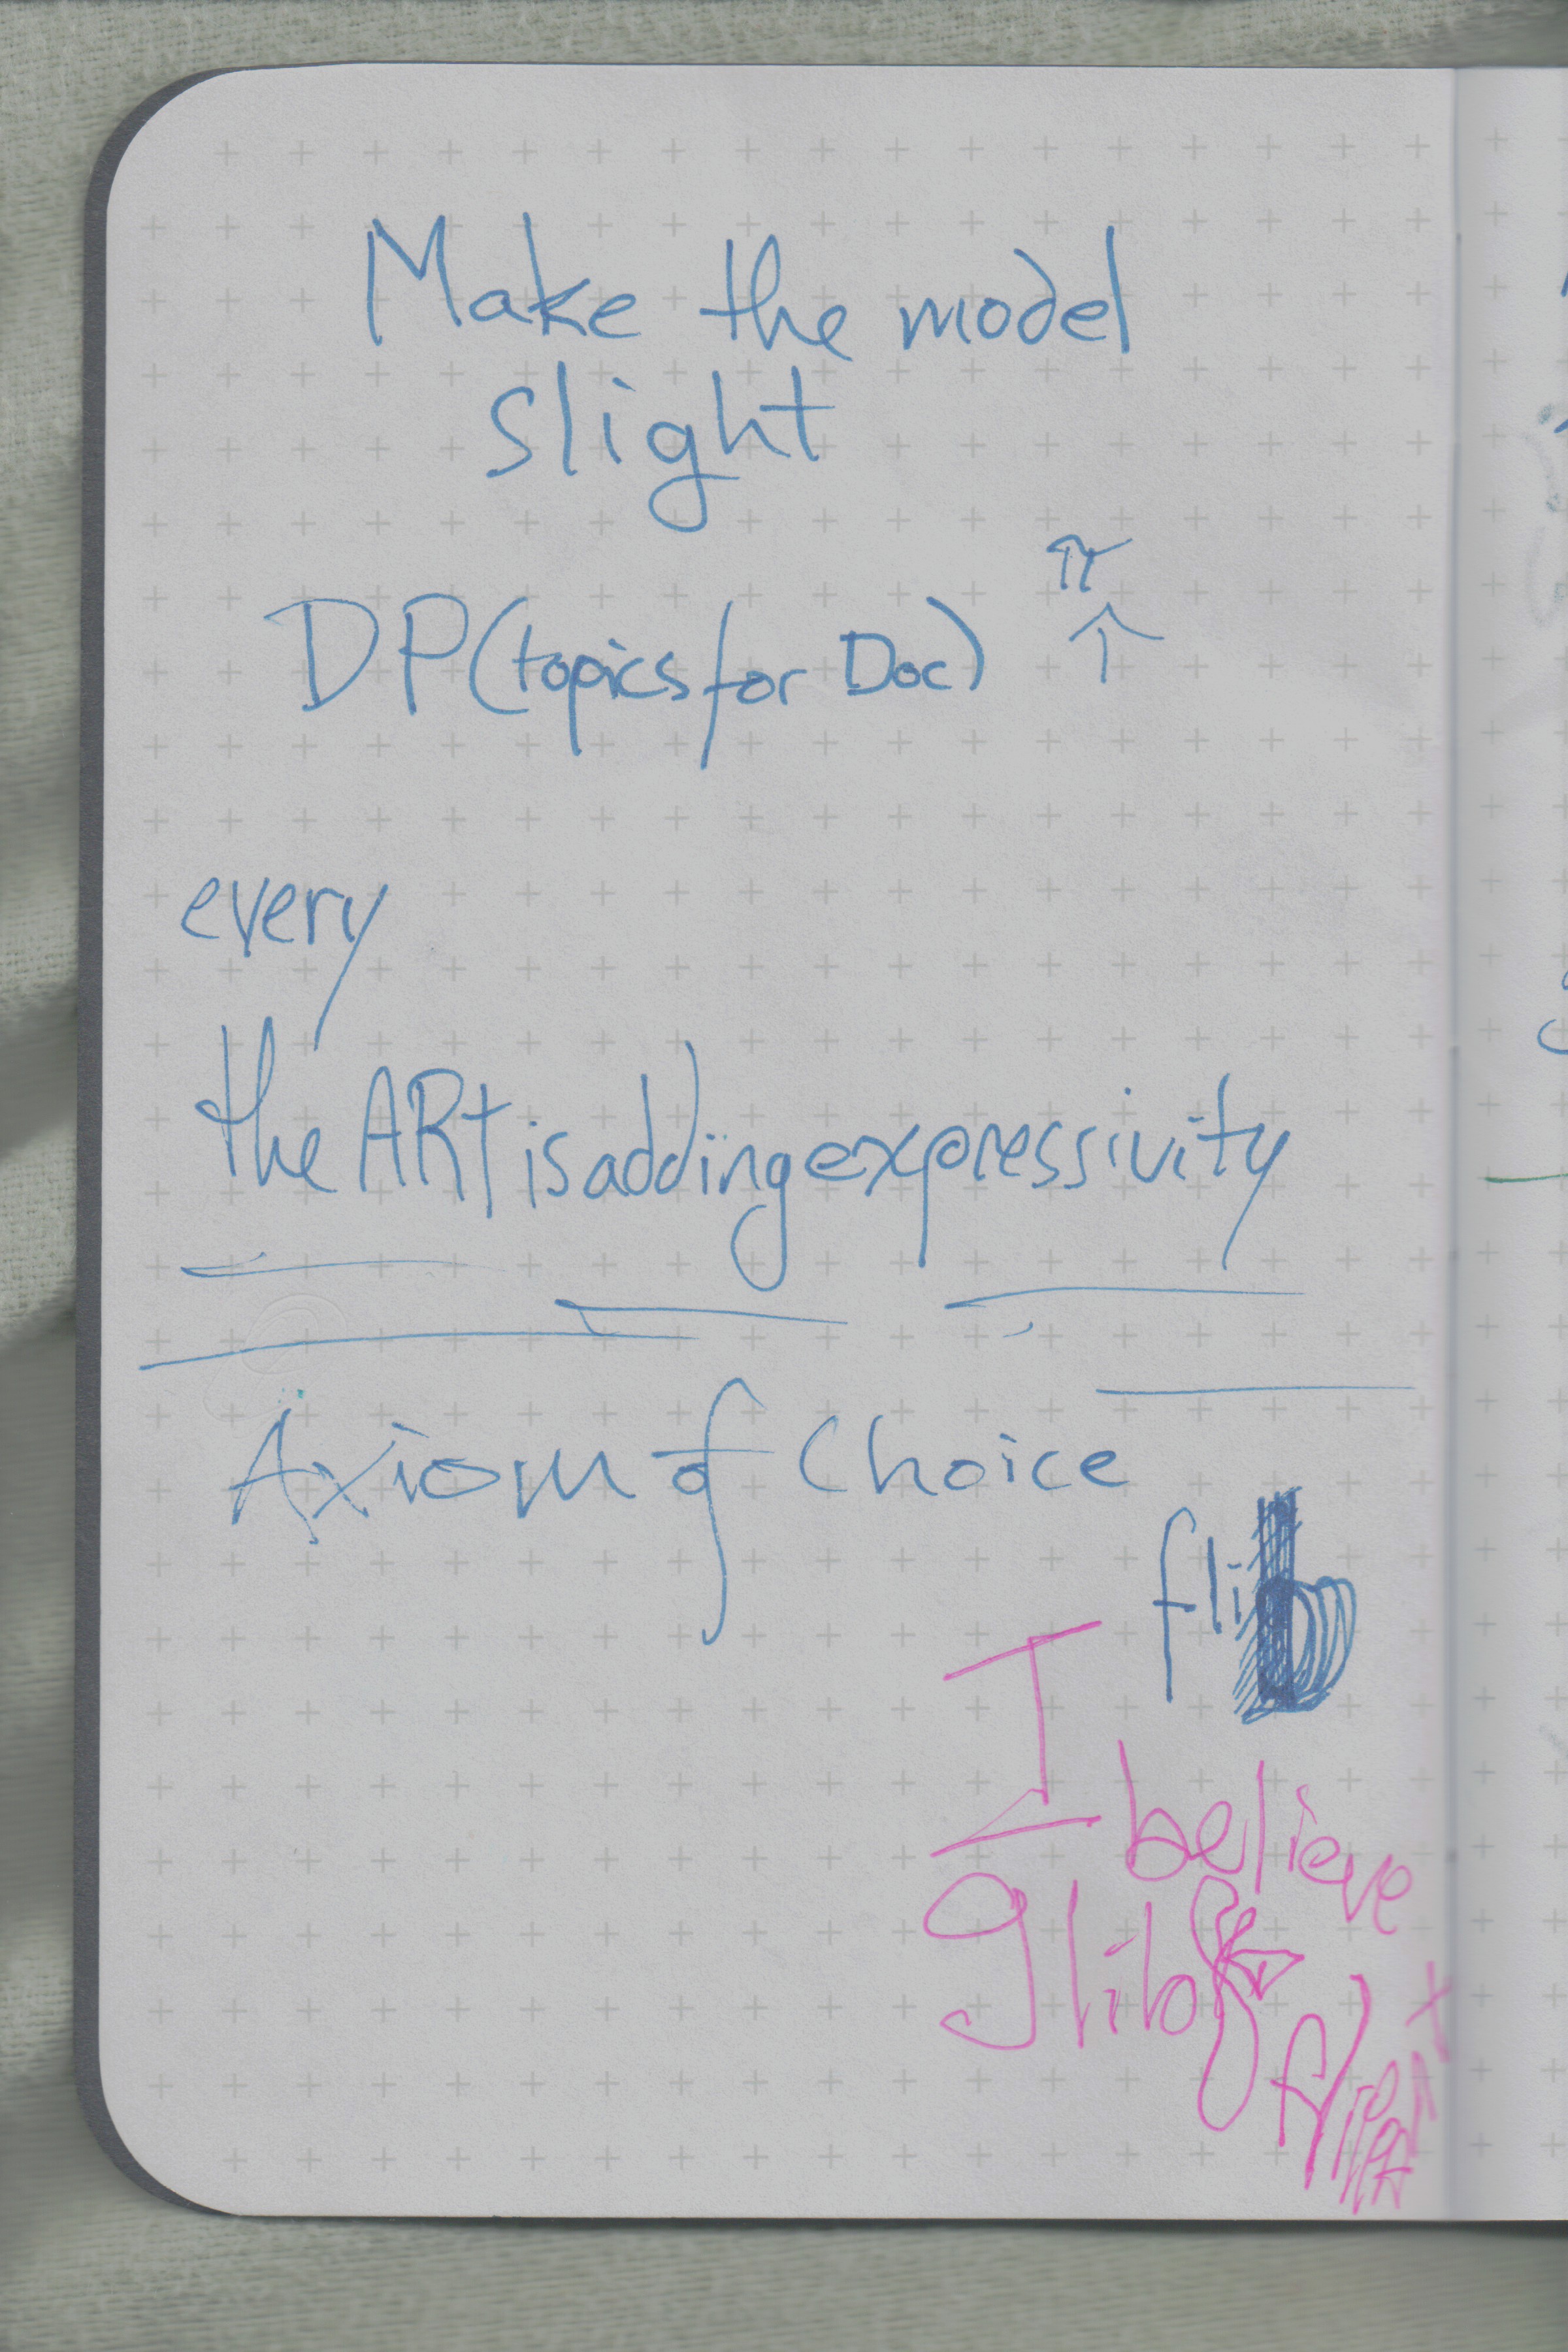 Make the model
slight
π
DP(topics for Doc) ↑
every
the ARt is adding expressivity
Axiom of Choice
flib
I believe
glib &
flippant